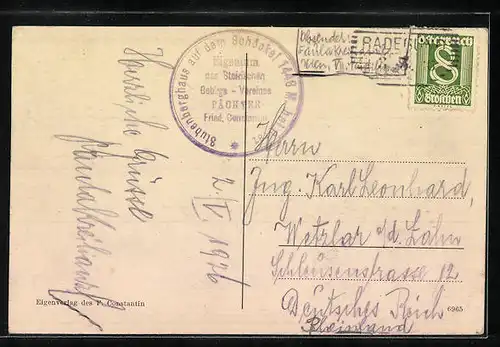 Stubenberghaus auf dem Schöckel 1448 M
Eigentum
des Steirischen
Gebirgs-Vereines
PÄCHTER
Fried. Constantin
Absender:
BADEN
Österreich
8
Groschen
Herzliche Grüsse
2. V. 1926
Herrn
Ing. Karl Leonhard,
Wetzlar a/d. Lahn
Schleusenstrasse 12
Deutsches Reich
Rheinland
Eigenverlag des F. Constantin
6965